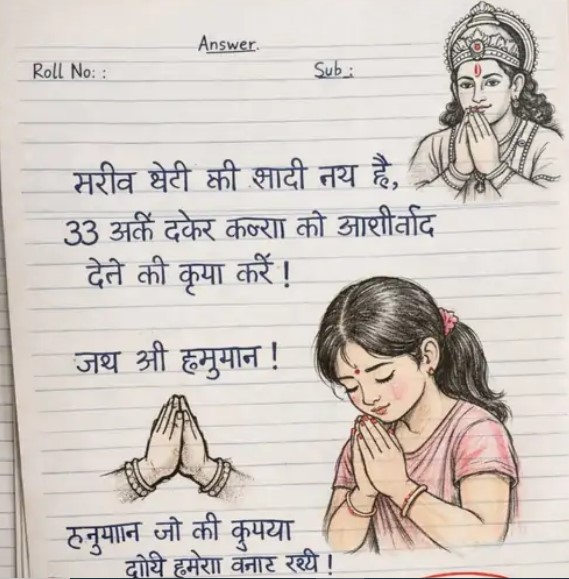 Answer.
Roll No: :
Sub :
मरीव थेटी की शादी नय है,
33 अर्के दकेर कन्या को आशीर्वाद
देने की कृया करें !
जथ श्री हमुमान !
हनुमाान जो की कुपया